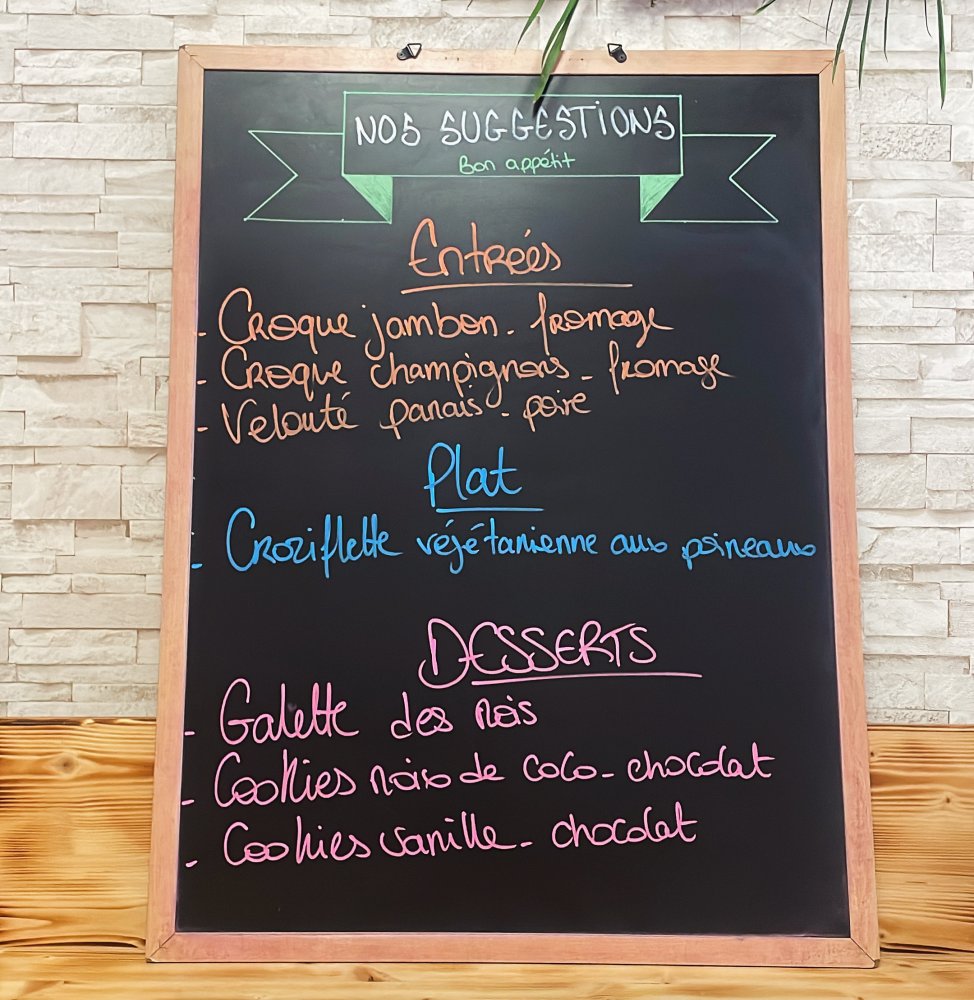 NOS SUGGESTIONS
Bon appétit
Entrées
- Croque jambon - fromage
- Croque champignons - fromage
- Velouté panais - poire
Plat
- Croziflette végétarienne aux poireaux
DESSERTS
- Galette des Rois
- Cookies noix de coco - chocolat
- Cookies vanille - chocolat